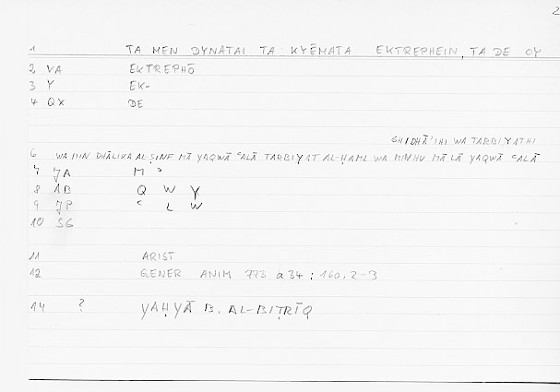 2
1 TA MEN DYNATAI TA KYĒMATA EKTREPHEIN, TA DE OY
2 VA EKTREPHŌ
3 Y EK-
4 QX DE
GHIDHĀ'IHI WA TARBIYATHI
6 WA MIN DHĀLIKA AL-ṢINF MĀ YAQWĀ ʿALĀ TARBIYAT AL-ḤAML WA MINHU MĀ LĀ YAQWĀ ʿALĀ
7 JA M ʾ
8 AB Q W Y
9 JP ʿ L W
10 SG
11 ARIST
12 GENER ANIM 773 a 34 ; 160, 2-3
14 ? YAḤYĀ B. AL-BIṬRĪQ